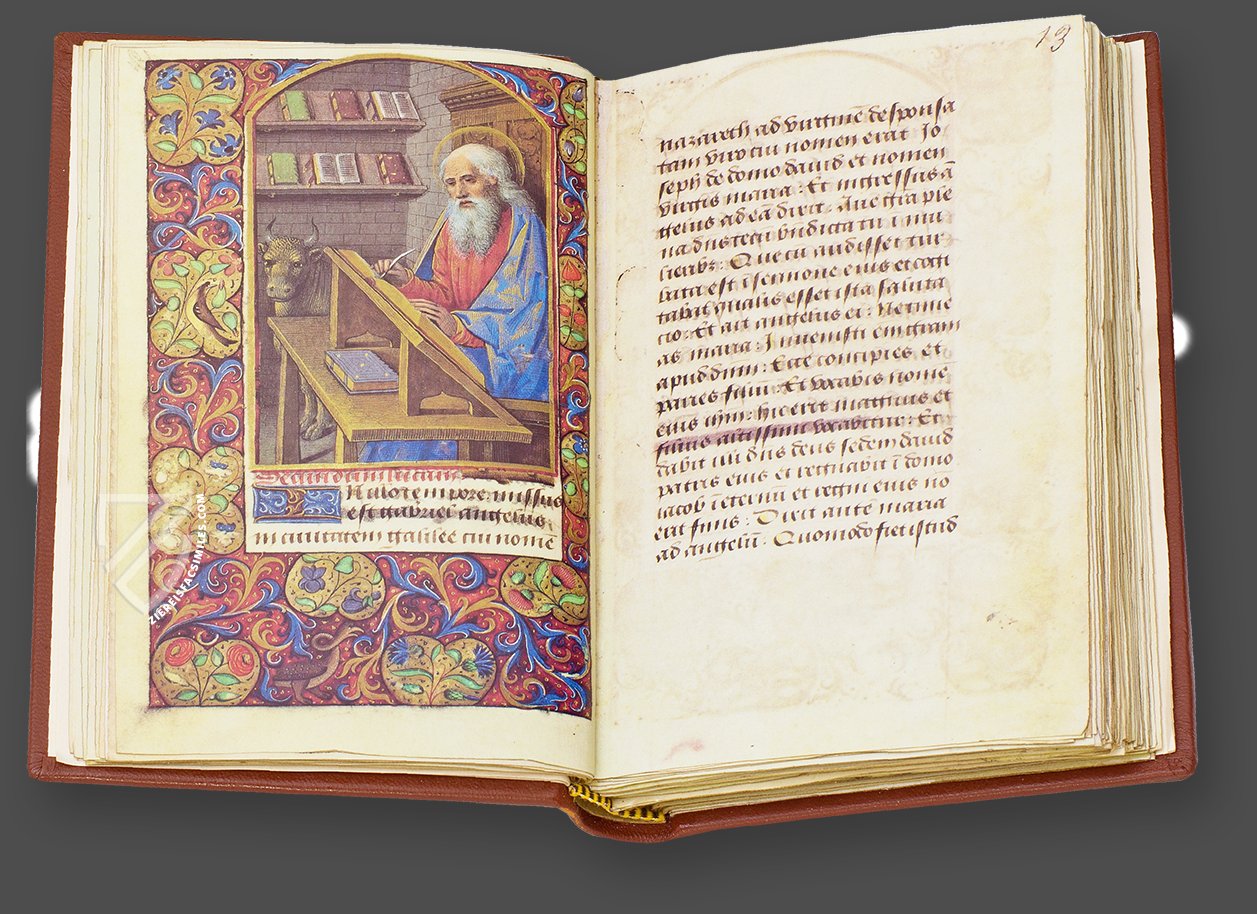 Secundum lucam
In illo tempore. missus
est gabriel angelus
in ciuitatem galilee cui nomē
ZIEREISFACSIMILES.COM
13
nazareth ad virginē desponsa
tam viro cui nomen erat Io
seph de domo dauid et nomen
virgīs maria: Et ingressus ā
gelus ad eā dixit. Aue grā ple
na dūs tecū bñdicta tu ī mu
lieribꝫ: Que cū audisset tur
bata est ī sermone eius et cogi
tabat qualis esset ista saluta
cio: Et ait angelus ei: Ne time
as maria: Inuenisti em gram
apud dnm: Ecce concipies et
paries filiū: Et vocabis nomē
eius ihm: hic erit magnus et
filius altissimi vocabitur: Et
dabit illi dns deus sedem dauid
patris eius et regnabit ī domo
iacob ī eternū et regni eius no
erit finis: Dixit autē maria
ad angelū: Quomodo fiet istud